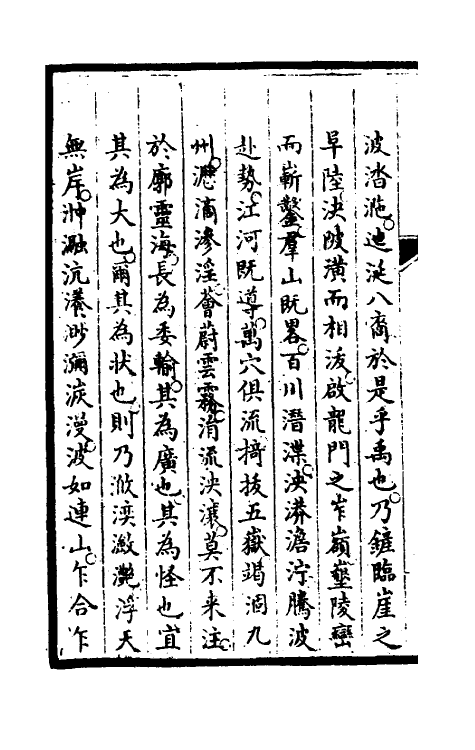 波涾𣶏。迆涎八裔。於是乎禹也。乃鏟臨崖之
阜陸決陂潢而相沷。啟龍門之岝嶺墾陵巒
而嶄鑿。羣山既畧。百川潛渫。泱漭澹泞騰波
赴勢。江河既導。萬穴俱流掎拔五嶽竭涸九
州。瀝滴滲淫薈蔚雲霧。涓流泱瀼。莫不來注。
於廓靈海。長為委輸。其為廣也。其為怪也宜
其為大也。爾其為狀也。則乃浟湙瀲灧浮天
無岸。浺瀜沆瀁渺瀰湠漫。波如連山。乍合乍